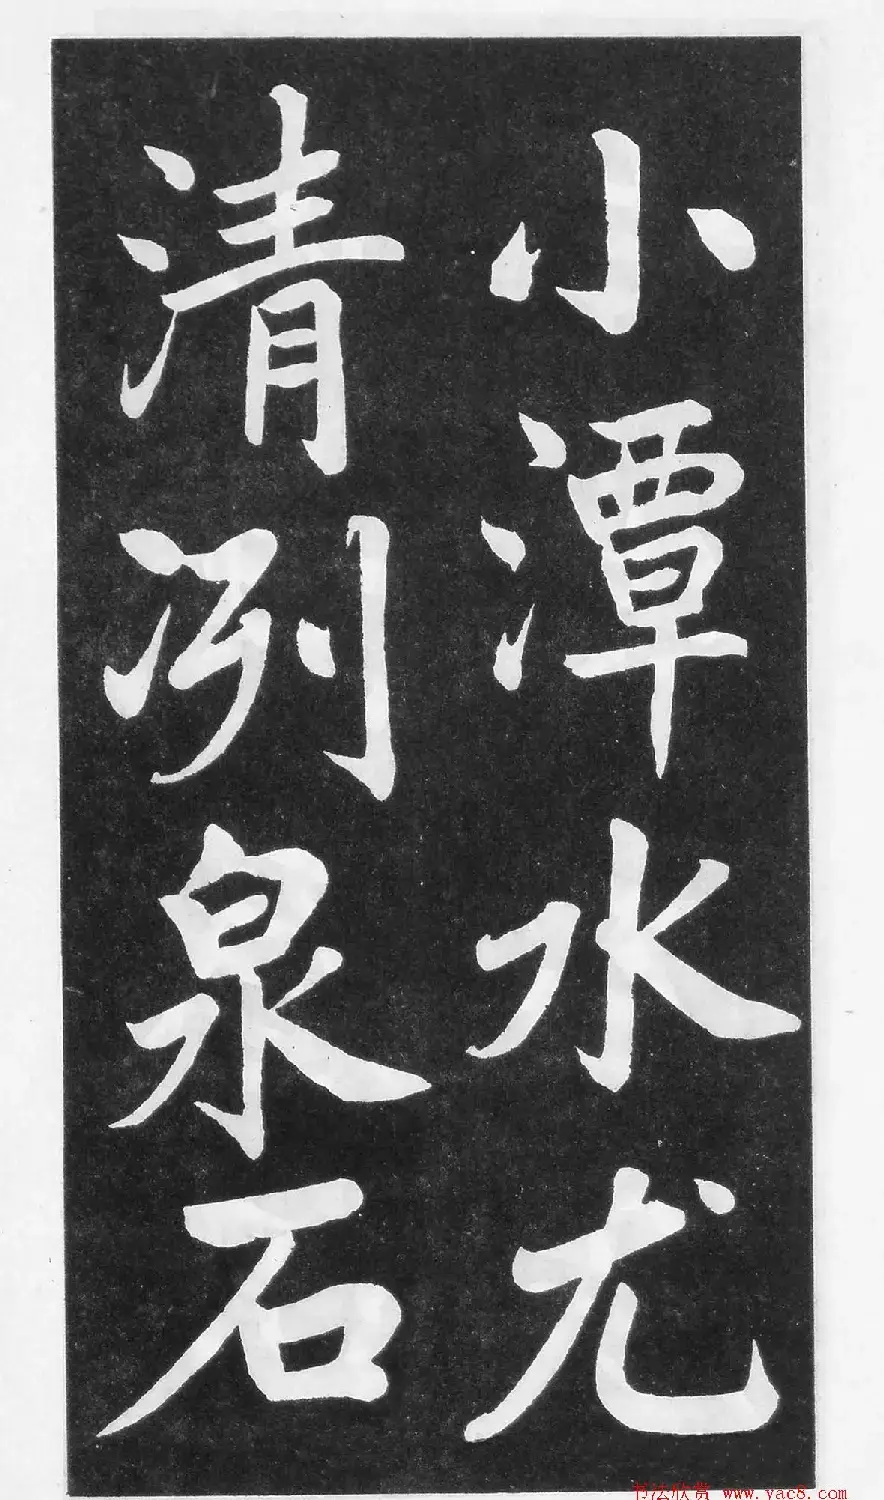 小潭水尤
清冽泉石
书法欣赏 www.yac8.com